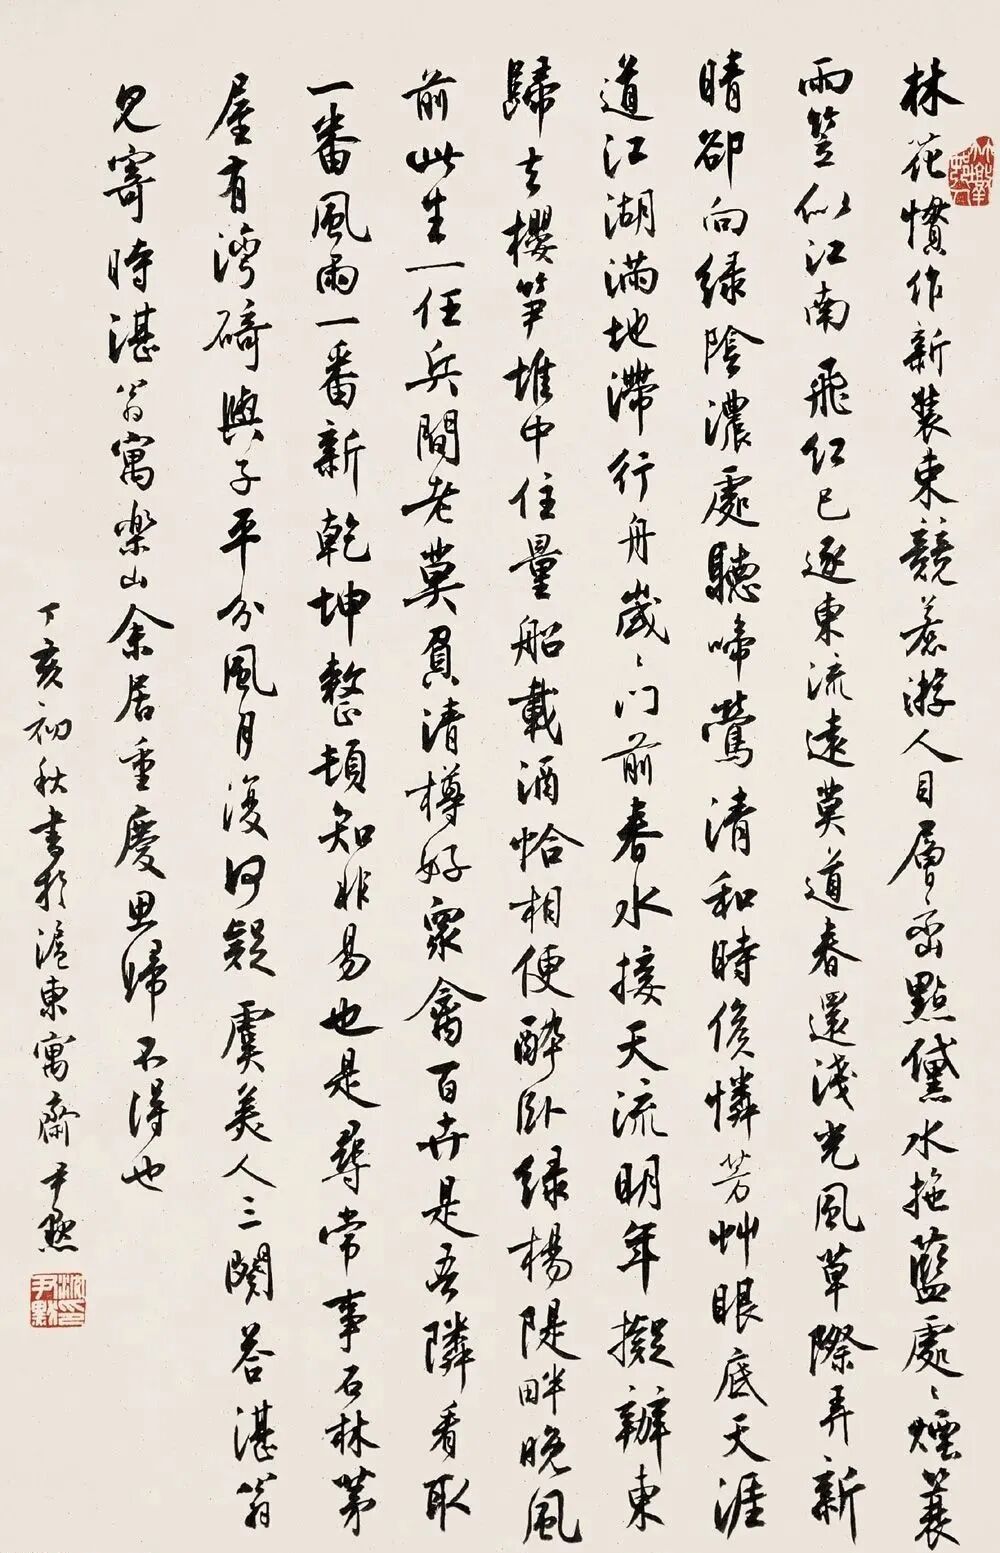 林花慣作新裝束競惹游人目層峦點黛水拖藍處〻煙蓑
雨笠似江南飛紅已逐東流遠莫道春還淺光風草際弄新
晴卻向綠陰濃處聽啼鶯清和時候憐芳艸眼底天涯
道江湖滿地滯行舟歲〻門前春水接天流明年擬辦東
歸去櫻筍堆中住量船載酒恰相便醉臥綠楊隄畔晚風
前此生一任兵間老莫負清樽好眾禽百卉是吾隣看取
一番風雨一番新乾坤整頓知非易也是尋常事石林茅
屋有灣碕與子平分風月復何疑虞美人三闋答湛翁
見寄時湛翁寓樂山余居重慶思歸不得也
丁亥初秋書於滬東寓齋尹默
沈尹默印